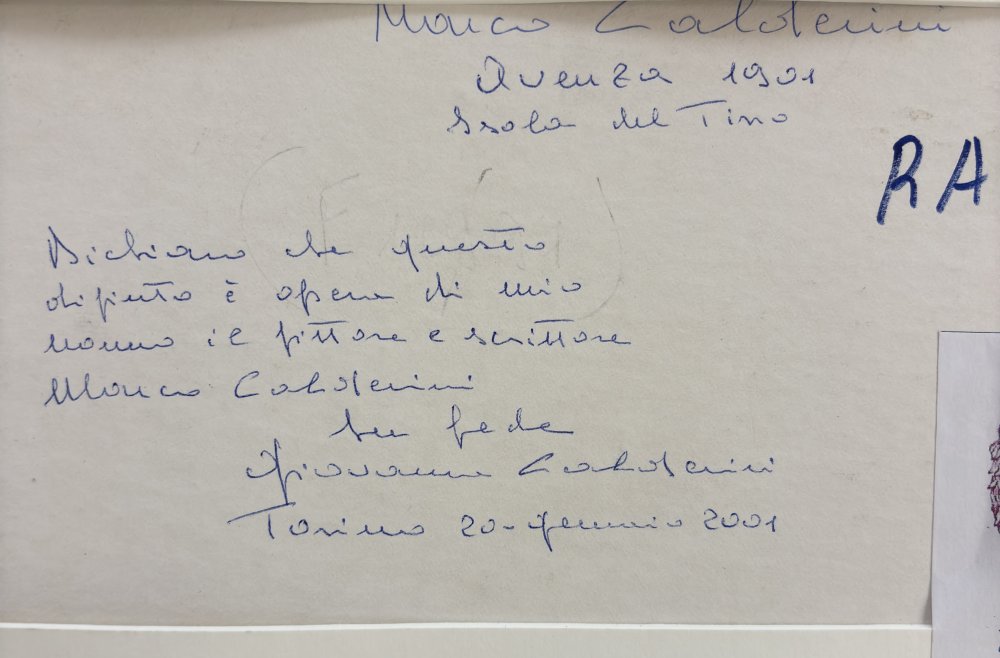 Marco Calderini
Avenza 1901
Isola del Tino
RA
Dichiaro che questo
dipinto è opera di mio
nonno il pittore e scrittore
Marco Calderini
In fede
Giovanni Calderini
Torino 20-gennaio 2001